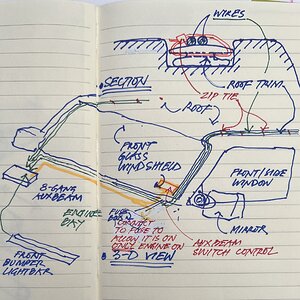 WIRES
SECTION
ROOF TRIM
ZIP TIE
ROOF
FRONT
GLASS
WINDSHIELD
8-GANG
AUXBEAM
ENGINE
BAY
FUSE
BOX
CONNECT
TO FUSE TO
ALLOW IT IS ON
ONLY ENGINE ON
3-D VIEW
FRONT/SIDE
WINDOW
MIRROR
AUXBEAM
SWITCH CONTROL
FRONT
BUMPER
LIGHTBAR